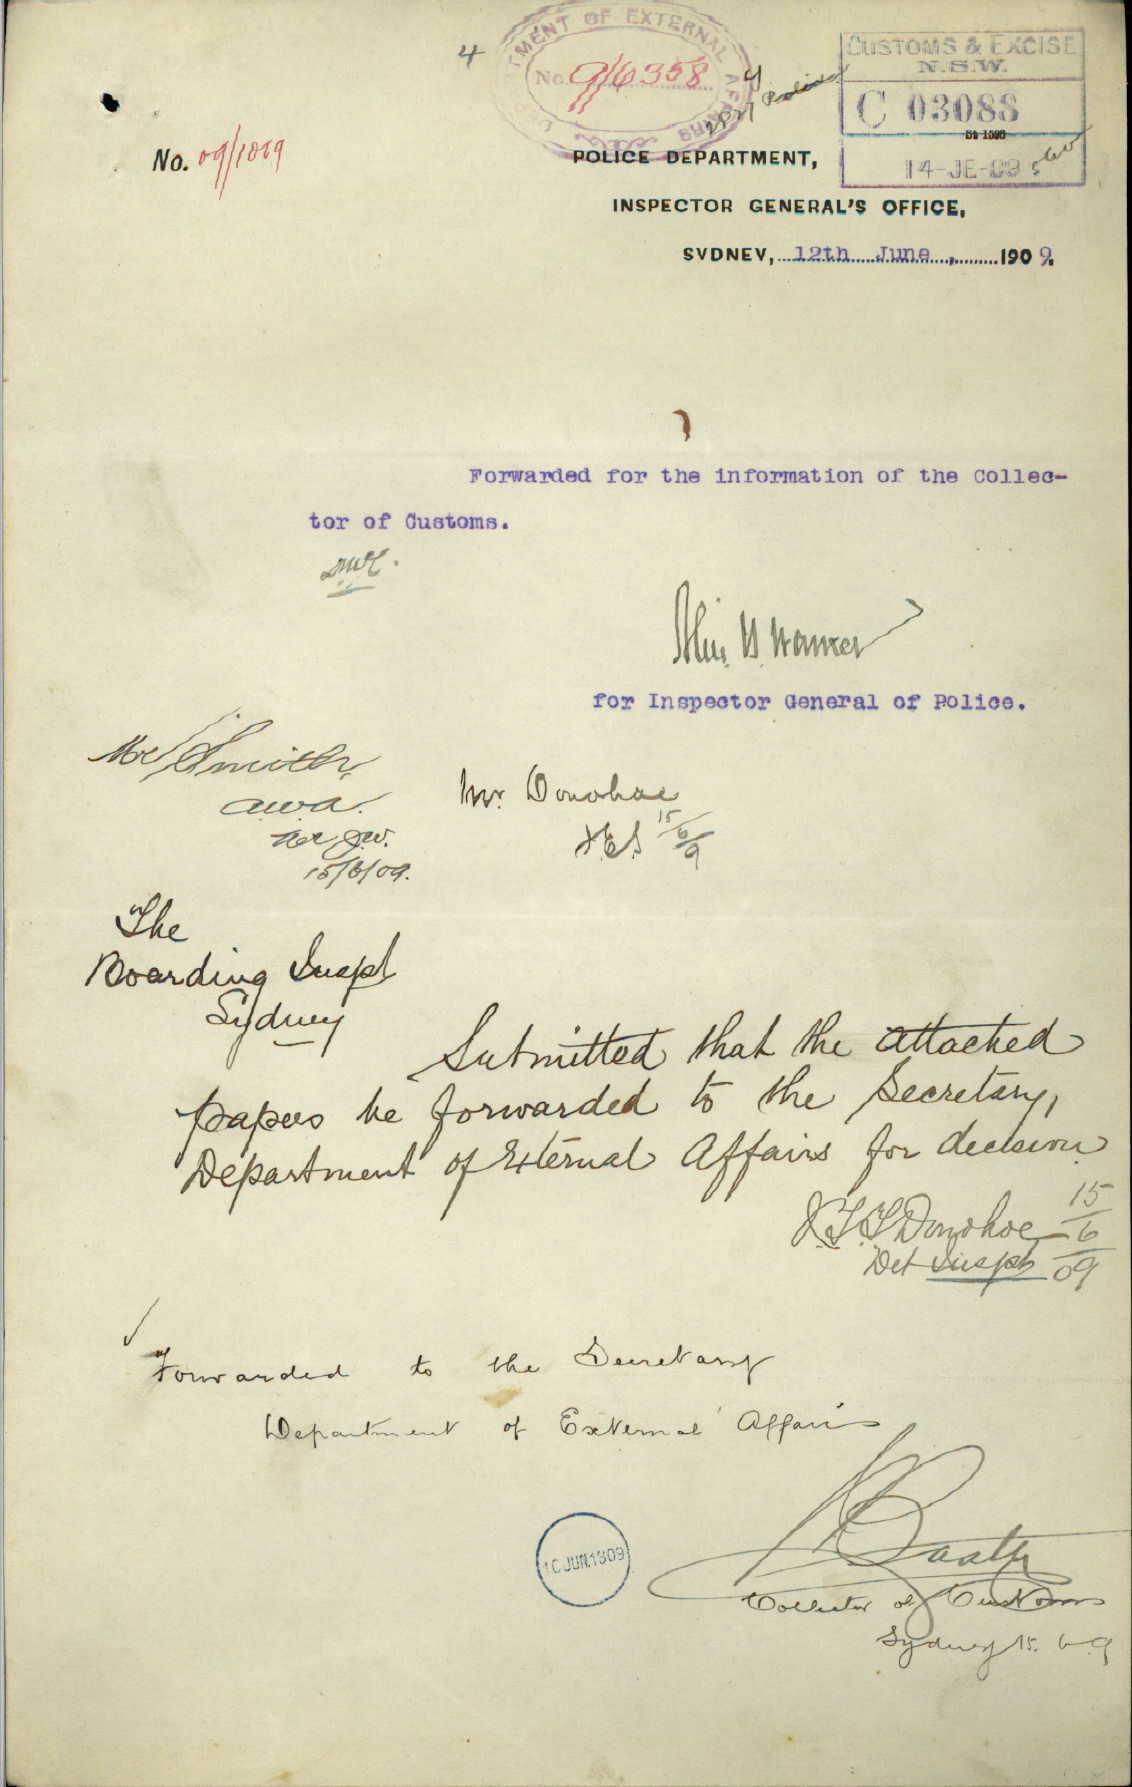 4
DEPARTMENT OF EXTERNAL AFFAIRS
No. 9/6358
CUSTOMS & EXCISE
N.S.W.
C 03088
14-JE-09
No. 09/1089
POLICE DEPARTMENT,
INSPECTOR GENERAL'S OFFICE,
SYDNEY, 12th June, 1909.
Forwarded for the information of the Collec-
tor of Customs.
for Inspector General of Police.
Mr Smith
15/6/09.
Mr. Donohoe
15/6/9
The
Boarding Inspr
Sydney
Submitted that the attached
papers be forwarded to the Secretary,
Department of External Affairs for decision
Donohoe 15/6/09
Det Inspr
Forwarded to the Secretary
Department of External Affairs
JUN.1909
Collector of Customs
Sydney 15.6.9